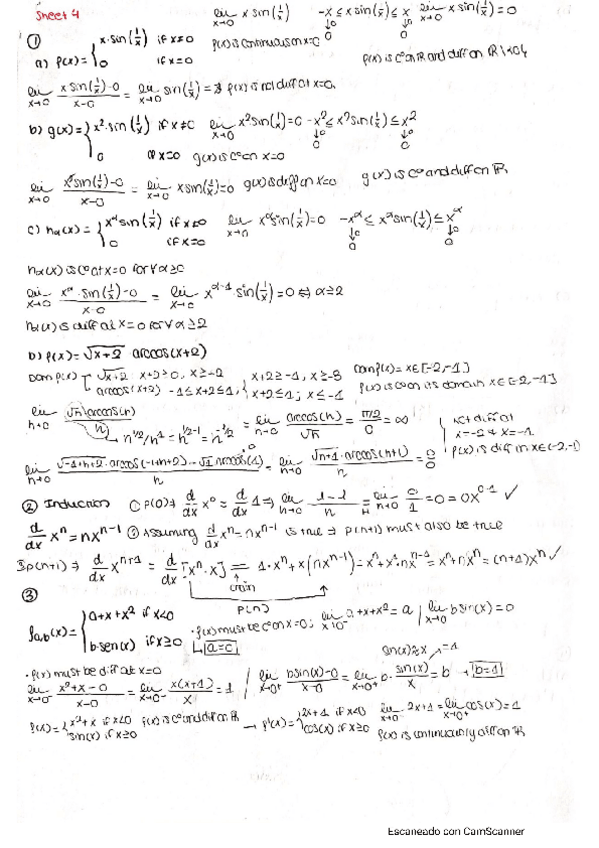 Sheet 4
lim x→0 x sin(1/x) -x ≤ x sin(1/x) ≤ x lim x→0 x sin(1/x) = 0
① 
a) f(x) = { x·sin(1/x) if x≠0 f(x) is continuous on x=0
0 if x=0 f(x) is C⁰ on ℝ and diff on ℝ\{0}
lim x→0 (x sin(1/x) - 0)/(x-0) = lim x→0 sin(1/x) = ∄ f(x) is not diff at x=0.
b) g(x) = { x²·sin(1/x) if x≠0 lim x→0 x² sin(1/x) = 0 -x² ≤ x² sin(1/x) ≤ x²
0 if x=0 g(x) is C⁰ on x=0
lim x→0 (x² sin(1/x) - 0)/(x-0) = lim x→0 x sin(1/x) = 0 g(x) is diff on x=0 g(x) is C⁰ and diff on ℝ.
c) hα(x) = { xᵅ sin(1/x) if x≠0 lim x→0 xᵅ sin(1/x) = 0 -xᵅ ≤ xᵅ sin(1/x) ≤ xᵅ
0 if x=0
hα(x) is C⁰ at x=0 for ∀α≥0
lim x→0 (xᵅ·sin(1/x) - 0)/(x-0) = lim x→0 xᵅ⁻¹·sin(1/x) = 0 ⇔ α≥2
hα(x) is diff at x=0 for ∀α≥2
D) f(x) = √(x+2) arccos(x+2)
Dom f(x) { √(x+2) : x+2≥0, x≥-2 { x+2≥-1, x≥-3 Dom f(x) = x∈[-2,-1]
arccos(x+2) -1≤x+2≤1, x+2≤1; x≤-1 f(x) is C⁰ on its domain x∈[-2,-1]
lim h→0 √h arccos(h)/h = lim h→0 arccos(h)/√h = (π/2)/0 = ∞ not diff at
h^(1/2)/h^1 = h^(1/2-1) = h^(-1/2) x=-2 & x=-1
f(x) is diff on x∈(-2,-1)
lim h→0 (√(-1+h+2)·arccos(-1+h+2) - √1 arccos(1))/h = lim h→0 √(h+1)·arccos(h+1)/h = 0/0
② Induction ① P(0) ⇒ d/dx x⁰ = d/dx 1 ⇒ lim h→0 (1-1)/h = lim h→0 0/1 = 0 = 0x⁰⁻¹ ✓
d/dx xⁿ = nxⁿ⁻¹ ② Assuming d/dx xⁿ = nxⁿ⁻¹ is true ⇒ P(n+1) must also be true
③ P(n+1) ⇒ d/dx xⁿ⁺¹ = d/dx [xⁿ·x] = 1·xⁿ + x(nxⁿ⁻¹) = xⁿ + x¹·nxⁿ⁻¹ = xⁿ + nxⁿ = (n+1)xⁿ ✓
P(n)
③
f a,b(x) = { a+x+x² if x<0
b·sen(x) if x≥0 · f(x) must be C⁰ on x=0; lim x→0⁻ a+x+x² = a / lim x→0⁺ b sin(x) = 0
a=0
· f(x) must be diff at x=0 sin(x)≈x
lim x→0⁻ (x²+x-0)/(x-0) = lim x→0⁻ x(x+1)/x = 1 / lim x→0⁺ (b sin(x)-0)/(x-0) = lim x→0⁺ b·sin(x)/x = b → b=1
f(x) = { x²+x if x<0 f(x) is C⁰ and diff on ℝ → f'(x) = { 2x+1 if x<0 lim x→0⁻ 2x+1 = lim x→0⁺ cos(x) = 1
sin(x) if x≥0 cos(x) if x≥0 f(x) is continuously diff on ℝ
Escaneado con CamScanner